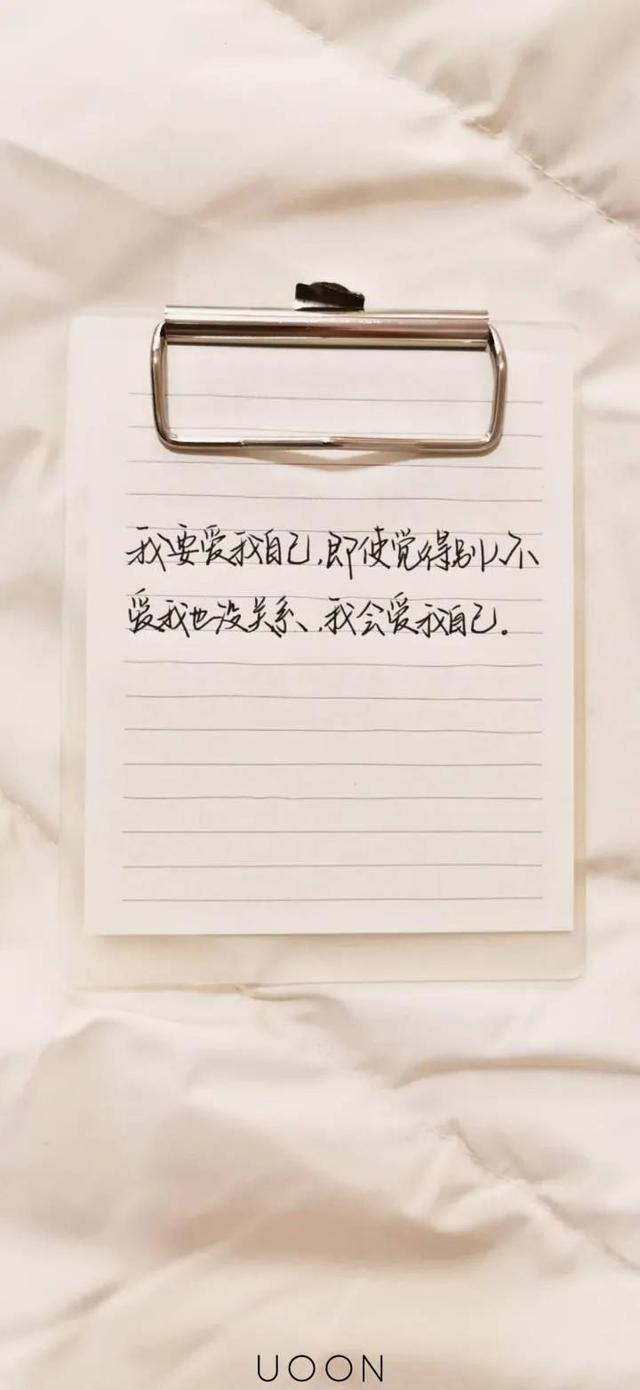 我要爱我自己，即使觉得别人不
爱我也没关系、我会爱我自己。
UOON